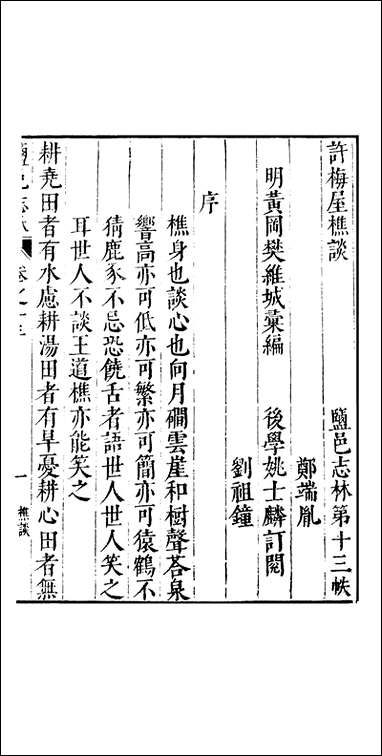 許梅屋樵談
鹽邑志林第十三帙
鄭端胤
明黃岡樊維城彙編
後學姚士麟訂閱
劉祖鐘
序
樵身也談心也向月磵雲崖和樹聲荅泉
響高亦可低亦可繁亦可簡亦可猿鶴不
猜鹿豕不忌恐饒舌者語世人世人笑之
耳世人不談王道樵亦能笑之
耕堯田者有水慮耕湯田者有旱憂耕心田者無
鹽邑志林
卷之十三
一
樵談